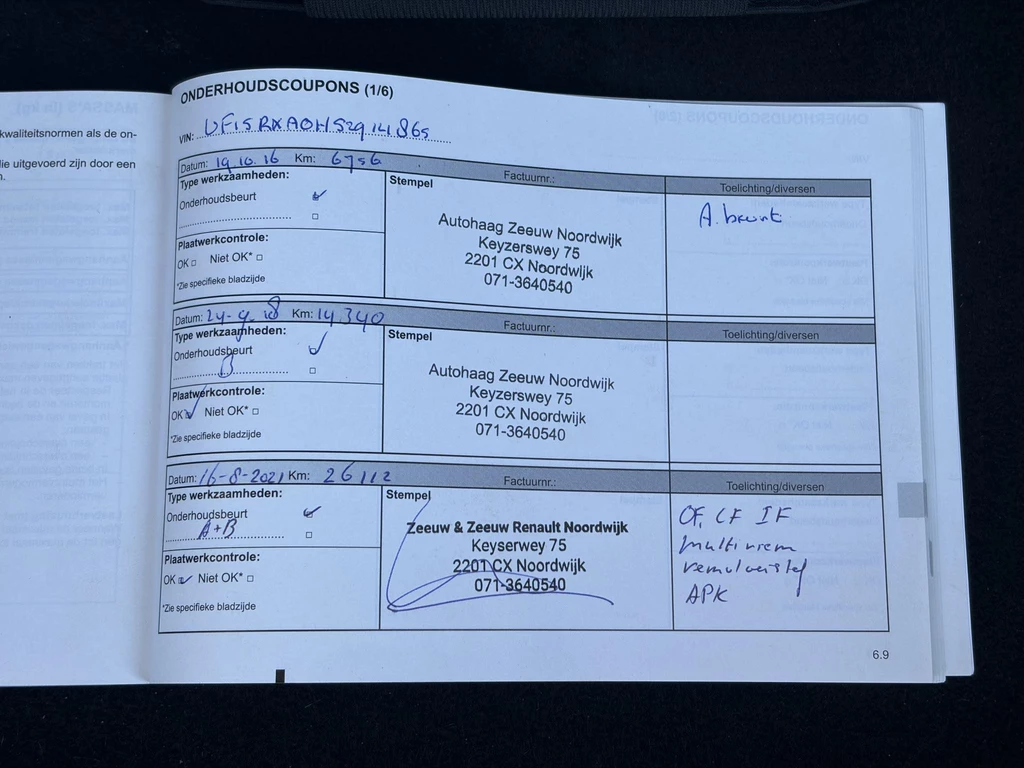 kwaliteitsnormen als de on-
die uitgevoerd zijn door een
n.
ONDERHOUDSCOUPONS (1/6)
VIN: VF15RXA0H52914865
Datum: 19.10.16 Km: 6756 Factuurnr.: Toelichting/diversen
Type werkzaamheden:
Stempel
Onderhoudsbeurt
A. beurt
Autohaag Zeeuw Noordwijk
Keyzerswey 75
2201 CX Noordwijk
071-3640540
Plaatwerkcontrole:
OK Niet OK*
*Zie specifieke bladzijde
Datum: 24-4-18 Km: 14340 Factuurnr.: Toelichting/diversen
Type werkzaamheden:
Stempel
Onderhoudsbeurt
B
Autohaag Zeeuw Noordwijk
Keyzerswey 75
2201 CX Noordwijk
071-3640540
Plaatwerkcontrole:
OK Niet OK*
*Zie specifieke bladzijde
Datum: 16-8-2021 Km: 26112 Factuurnr.: Toelichting/diversen
Type werkzaamheden:
Stempel
Onderhoudsbeurt
A+B
Zeeuw & Zeeuw Renault Noordwijk
Keyserwey 75
2201 CX Noordwijk
071-3640540
OF, LF IF
multiriem
remvloeistof
APK
Plaatwerkcontrole:
OK Niet OK*
*Zie specifieke bladzijde
6.9